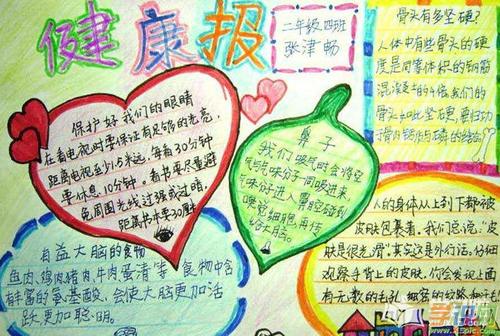 健康报
二年级四班
张津畅
骨头有多坚硬?
人体中有些骨头的硬
度是同等体积的钢筋
混凝土的4倍。我们的
骨头如此坚硬,要归功
保护好我们的眼睛
在看电视时要保证有足够的光亮,
距离电视至少5米远,每看30分钟
要休息10分钟。看书要尽量避
免周围光线过强或过暗,
距离书本要30厘米
鼻子
我们吸气时会将空
气与气味分子一同吸进来,
气味分子进入鼻腔碰到
嗅觉细胞再传
给大脑。
有益大脑的食物
鱼肉、鸡肉、猪肉、牛肉、蛋清等,食物中含
丰富的氨基酸,会使大脑更加活
跃、更加聪明。
人的身体从上到下都被
皮肤包裹着。我们总说:“皮
肤是很光滑”。其实这是外行话。仔细
观察手背上的皮肤,你会发现上面
有无数的毛孔